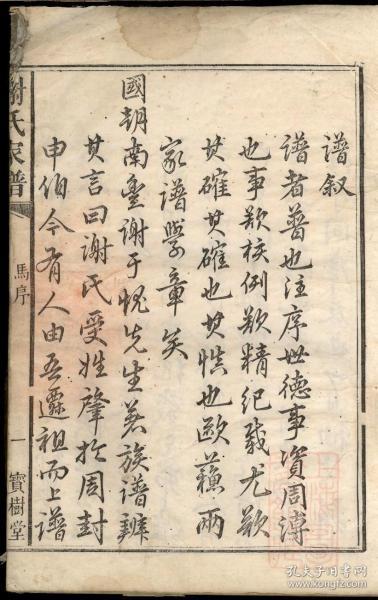 譜叙
譜者普也注序世德事資周溥
也事欲核例欲精紀載尤欲
其確其確也其慎也歐蘇兩
家譜學章矣
國朝南豐謝于愧先生著族譜辨
其言曰謝氏受姓肇於周封
申伯今有人由吾遷祖而上譜
謝氏家譜
馬序
一
寶樹堂
孔夫子旧书网